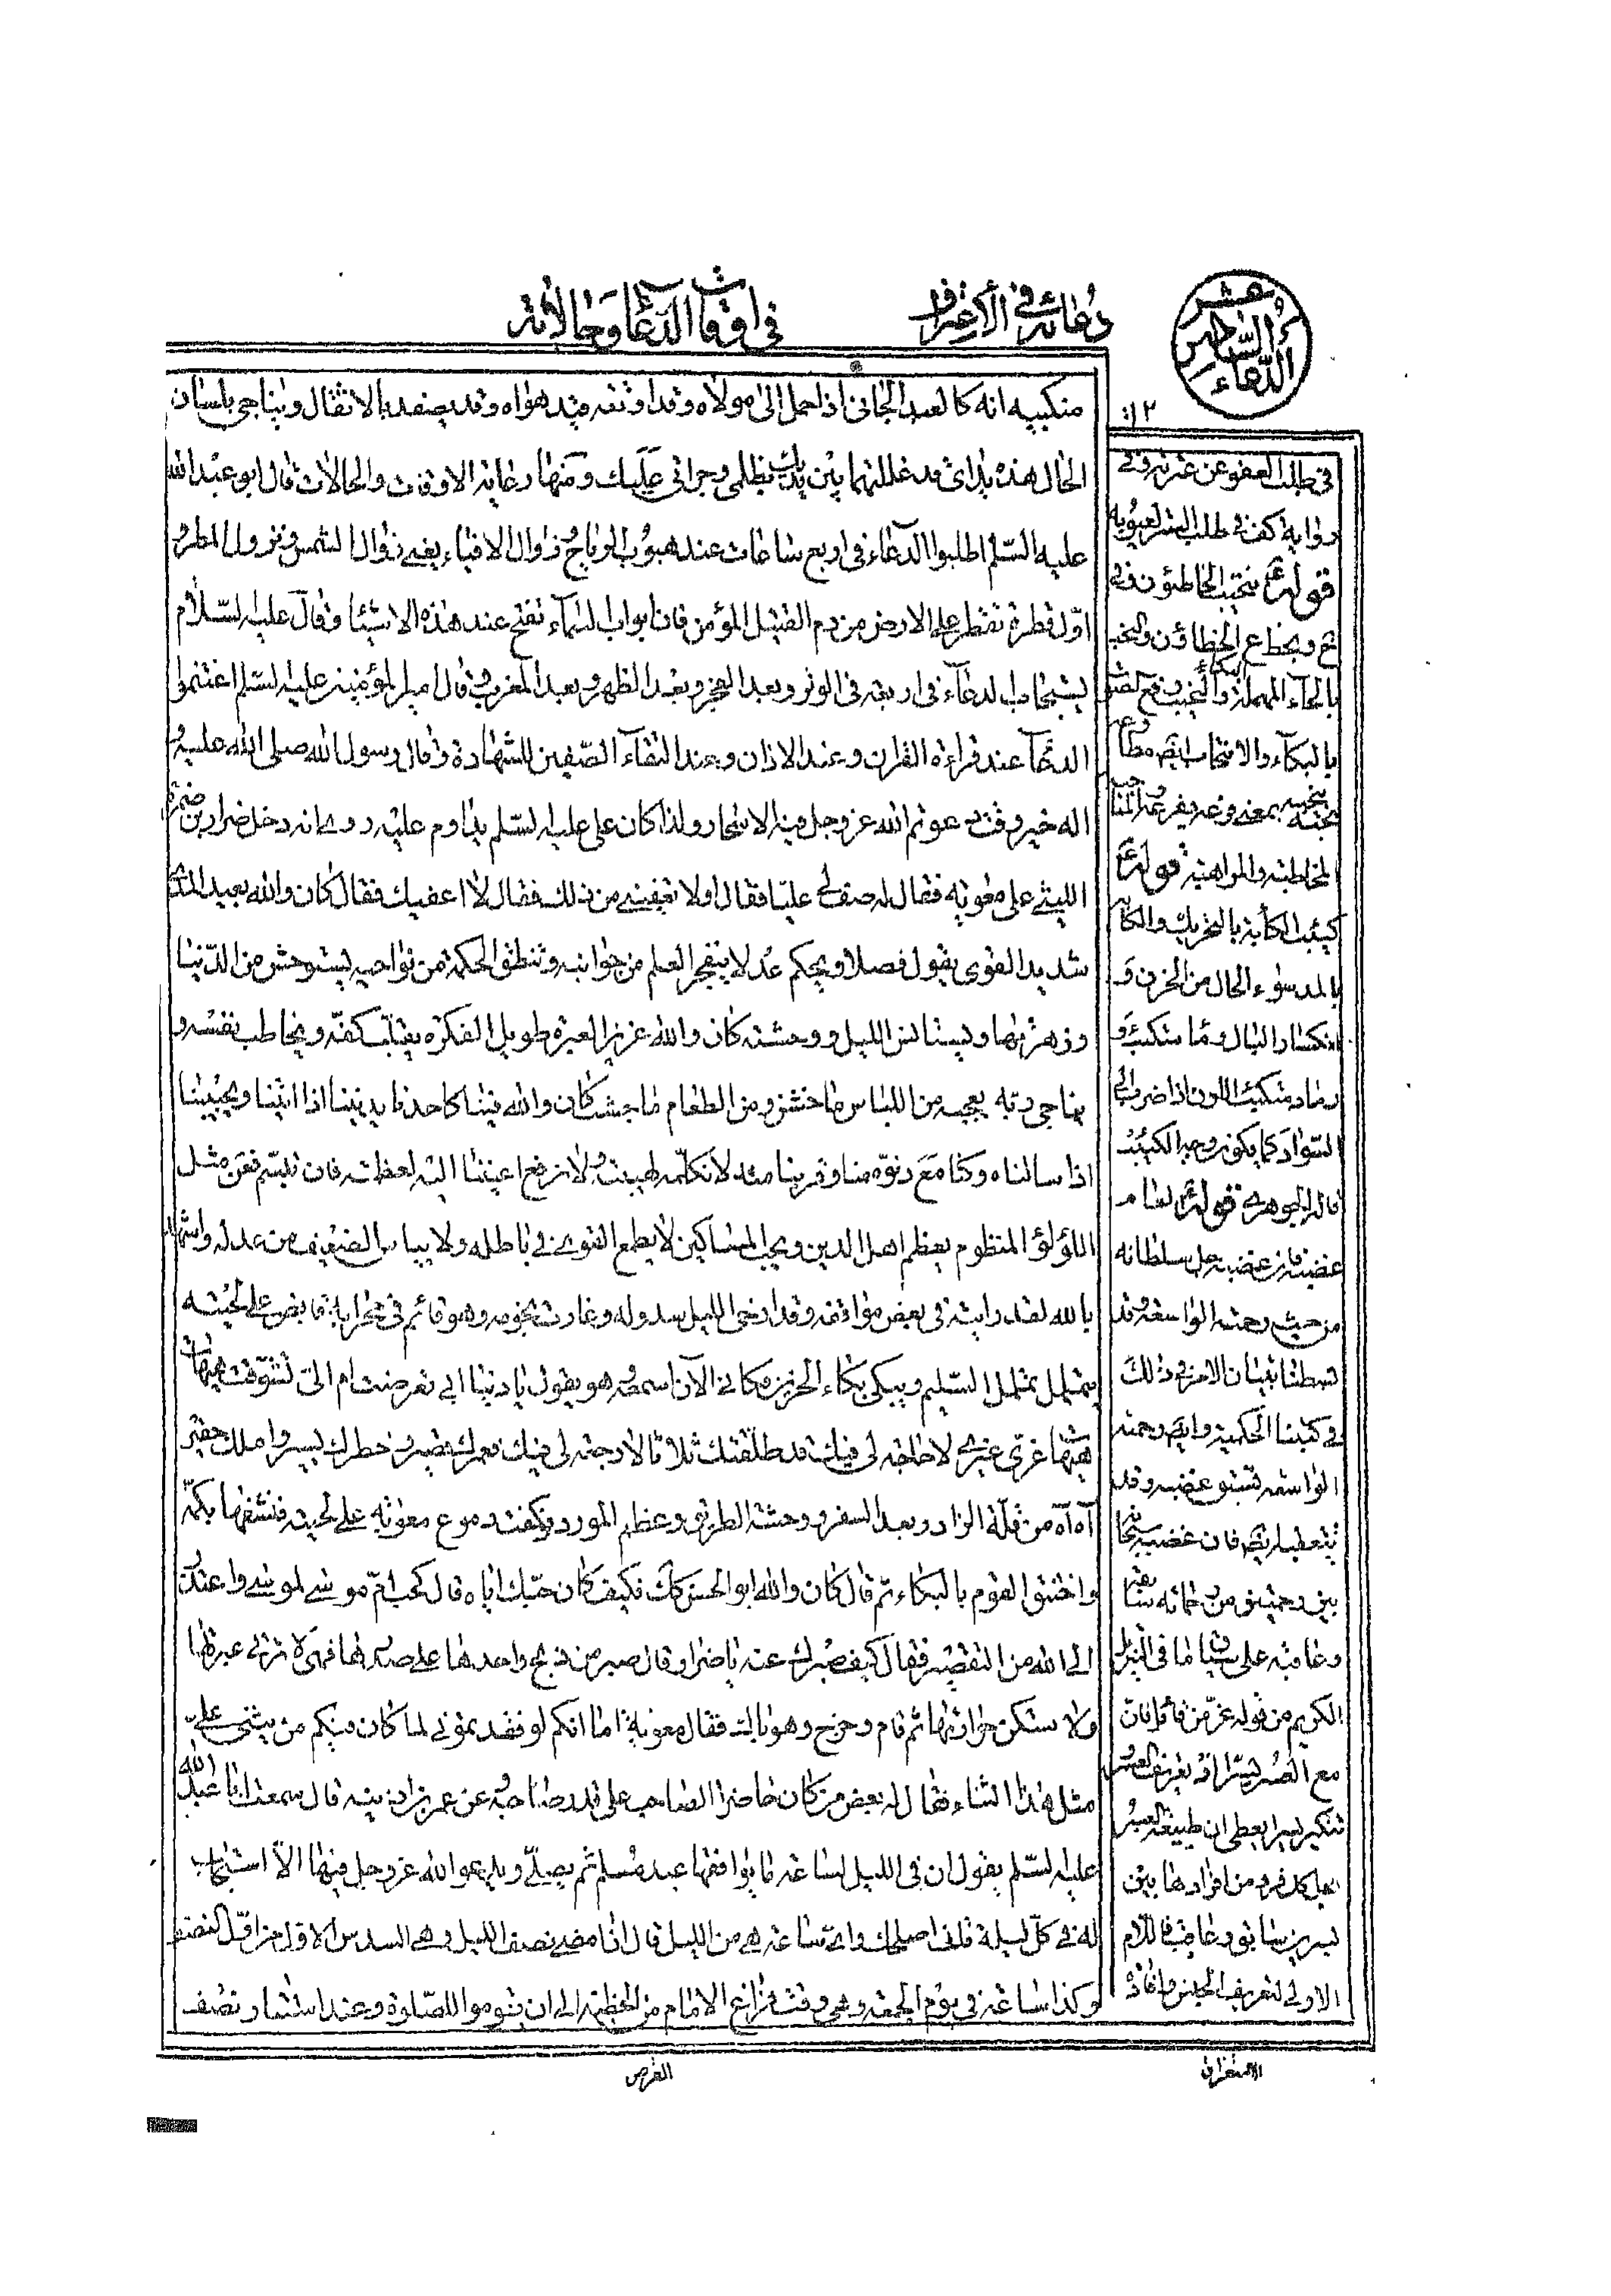 دعائه في الاعتراف
في اوقات الدعاء وحالاته
الدعاء
١٢
منكبيه انه كالعبد الجاني اذا حمل الى مولاه وقد اوثقه قيد هواه وقد يصفد بالاثقال ويناجي بلسان
الحال هذه يداى قد غللتهما بين يديك بظلمي وجراتي عليك ومنها رعاية الاوقات والحالات قال ابو عبد الله
عليه السلم اطلبوا الدعاء في اربع ساعات عند هبوب الرياح وزوال الافياء يعني زوال الشمس ونزول المطر و
اول قطرة تقطر على الارض من دم القتيل المؤمن فان ابواب السماء تفتح عند هذه الاشيا وقال عليه السلام
يستجاب الدعاء في اربعة في الوتر وبعد الفجر وبعد الظهر وبعد المغرب وقال امير المؤمنين عليه السلم اغتنموا
الدعا عند قراءة القران وعند الاذان وعند التقاء الصفين للشهادة وقال رسول الله صلى الله عليه و
اله خير وقت دعوتم الله عز وجل فيه الاسحار ولذا كان علي عليه السلم يداوم عليه روي انه دخل ضرار بن ضمرة
الليثي على معوية فقال له صف لي عليا فقال اولا تعفيني من ذلك فقال لا اعفيك فقال كان والله بعيد المدى
شديد القوى يقول فصلا ويحكم عدلا يتفجر العلم من جوانبه وتنطق الحكمة من نواحيه يستوحش من الدنيا
وزهرتها ويستانس الليل ووحشته كان والله غزير العبرة طويل الفكرة يقلب كفه ويخاطب نفسه و
يناجي ربه يعجبه من اللباس ما خشن ومن الطعام ما جشب كان والله فينا كاحدنا يدنينا اذا اتينا ويجيبنا
اذا سالناه وكنا مع دنوه منا وقربنا منه لا نكلمه لهيبته ولا نرفع اعيننا اليه لعظمته فان تبسم فعن مثل
اللؤلؤ المنظوم يعظم اهل الدين ويحب المساكين لا يطمع القوي في باطله ولا يياس الضعيف من عدله واشهد
بالله لقد رايته في بعض مواقفه وقد ارخى الليل سدوله وغارت نجومه وهو قائم في محرابه قابض على لحيته
يتململ تململ السليم ويبكي بكاء الحزين فكاني الآن اسمعه وهو يقول يا دنيا ابي تعرضت ام الي تشوقت هيهات
هيهات غري غيري لا حاجة لي فيك قد طلقتك ثلاثا لا رجعة لي فيك فعمرك قصير وخطرك يسير واملك حقير
آه آه من قلة الزاد وبعد السفر ووحشة الطريق وعظم المورد فوكفت دموع معوية على لحيته فنشفها بكمه
واختنق القوم بالبكاء ثم قال كان والله ابو الحسن كذلك فكيف كان حبك اياه قال كحب ام موسى لموسى واعتذر
الى الله من التقصير فقال كيف صبرك عنه يا ضرار قال صبر من ذبح واحدها على صدرها فهي لا ترقى عبرتها
ولا تسكن حرارتها ثم قام وخرج وهو باك فقال معوية اما انكم لو فقدتموني لما كان فيكم من يثني علي
مثل هذا الثناء فقال له بعض من كان حاضرا الصاحب على قدر صاحبه وعن عمر بن اذينه قال سمعت ابا عبد الله
عليه السلم يقول ان في الليل لساعة ما يوافقها عبد مسلم ثم يصلي ويدعو الله عز وجل فيها الا استجاب
له في كل ليلة قلت اصلحك الله واي ساعة هي من الليل قال اذا مضى نصف الليل وهي السدس الاول من اول النصف
وكذا ساعة في يوم الجمعة وهي وقت فراغ الامام من الخطبة الى ان تقوموا للصلوة وعند استتار نصف
القرص
في طلب العفو عن عثرته وفي
رواية كف في طلب الستر لعيوبه
قوله ينتحب الخاطئون في
بالحاء المهملة والنحيب رفع الصوت
بالبكاء والانتحاب
المخاطبة والمراهنة قوله
كئيب الكآبة بالتحريك والكآبة
بالمد سوء الحال من الحزن و
انكسار البال وماء مكتئب و
رماد مكتئب اللون اذا ضرب الى
السواد كما يكون وجه الكئيب
قاله الجوهري قوله
غضبه فان غضبه جل سلطانه
من حيث رحمته الواسعة وقد
بسطنا بيان الامر في ذلك
في كتبنا الحكمية وايضا رحمته
الواسعة تسبق غضبه وقد
بين رحمتين من رحماته
الكريم من قوله عز من قائل فان
مع العسر يسرا اذ تعريف العسر
تنكير يسرا يعطي ان طبيعة العسر
بكل فرد من افرادها بين
يسرين سابق وعاقب فاللام
الاولى لتعريف الجنس وافادة
الاستغراق